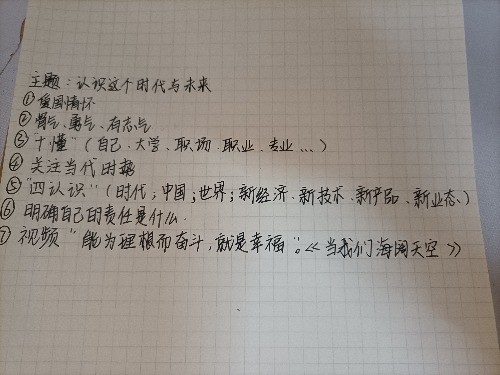 主题：认识这个时代与未来
①爱国情怀
②骨气、勇气、有志气
③十懂"（自己、大学、职场、职业、专业...）
④关注当代时势
⑤"四认识"（时代；中国；世界；新经济、新技术、新产品、新业态、）
⑥明确自己的责任是什么.
⑦视频"能为理想而奋斗，就是幸福"。《当我们海阔天空》